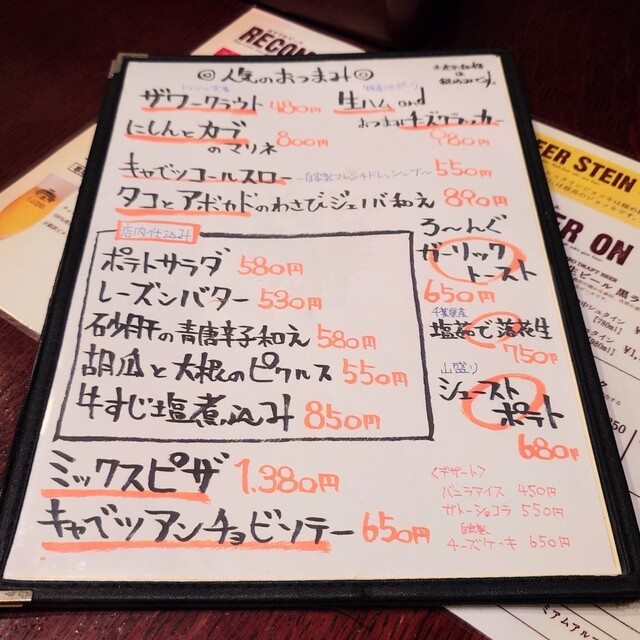 ◎人気のおつまみ◎
ザワークラウト 480円
生ハム and
おつまみチーズクラッカー
980円
にしんとカブ
のマリネ 800円
キャベツコールスロー ~自家製フレンチドレッシング~ 550円
タコとアボカドのわさびジェノバ和え 890円
店内仕込み
ポテトサラダ 580円
レーズンバター 530円
砂肝の青唐辛子和え 580円
胡瓜と大根のピクルス 550円
牛すじ塩煮込み 850円
ろ〜んぐ
ガーリック
トースト
650円
千葉県産
塩茹で落花生
750円
山盛り
シュースト
ポテト
680円
ミックスピザ 1.380円
キャベツアンチョビソテー 650円
<デザート>
バニラアイス 450円
ガトーショコラ 550円
自家製
チーズケーキ 650円
RECOM
EER STEIN
ER ON
DRAFT BEER
ビール 黒